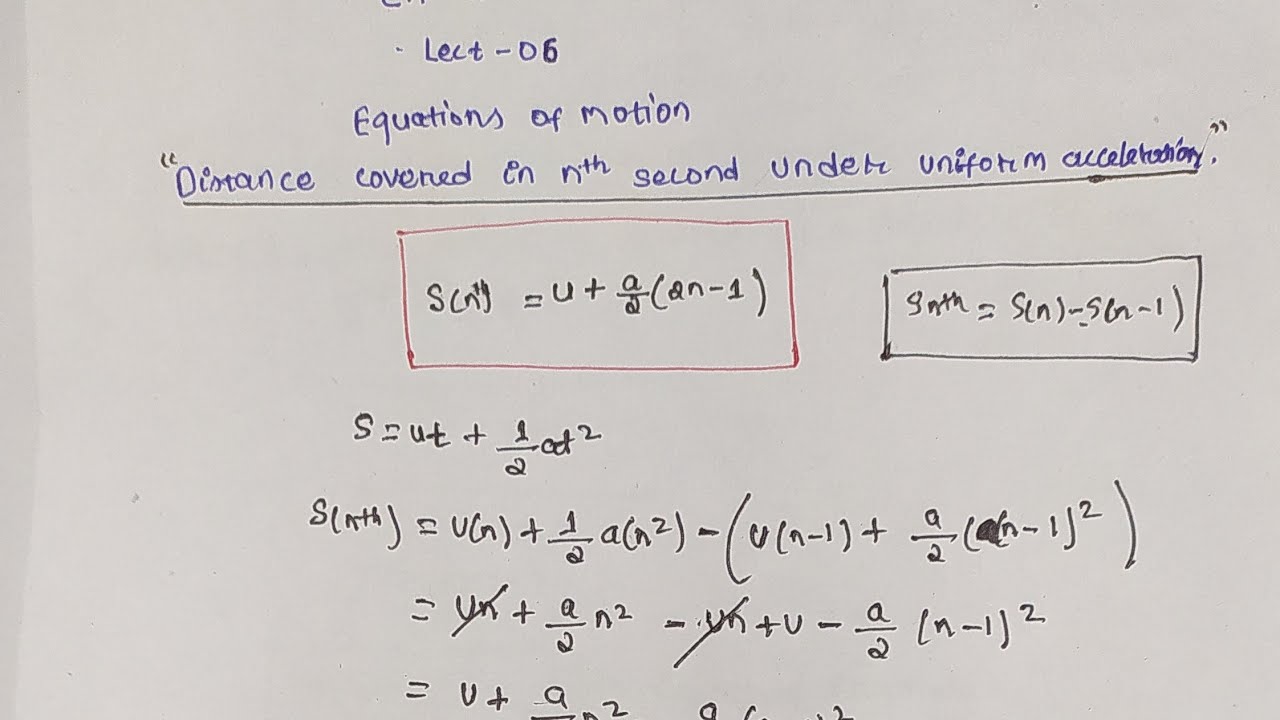 · Lect - 06
Equations of motion
"Distance covered in nth second under uniform acceleration."
S(nth) = u + a/2 (2n - 1)
Snth = S(n) - S(n-1)
S = ut + 1/2 at²
S(nth) = u(n) + 1/2 a(n²) - (u(n-1) + a/2 (n-1)²)
= un + a/2 n² - un + u - a/2 (n-1)²
= u + a/2 n²